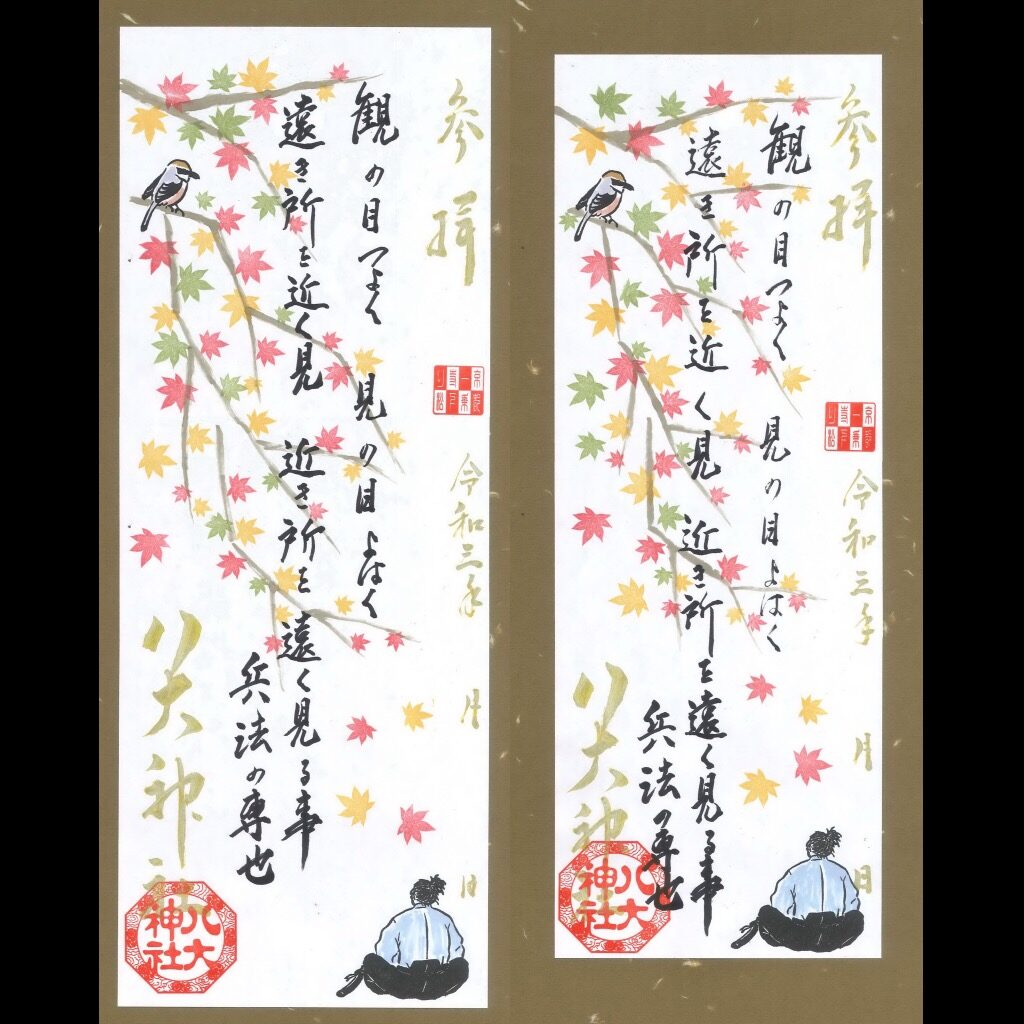 参拝
京都
一乗
寺下
り松
令和三年 月 日
観の目つよく 見の目よはく
遠き所を近く見 近き所を遠く見る事
兵法の専也
八大神社
八大
神社
参拝
京都
一乗
寺下
り松
令和三年 月 日
観の目つよく 見の目よはく
遠き所を近く見 近き所を遠く見る事
兵法の専也
八大神社
八大
神社